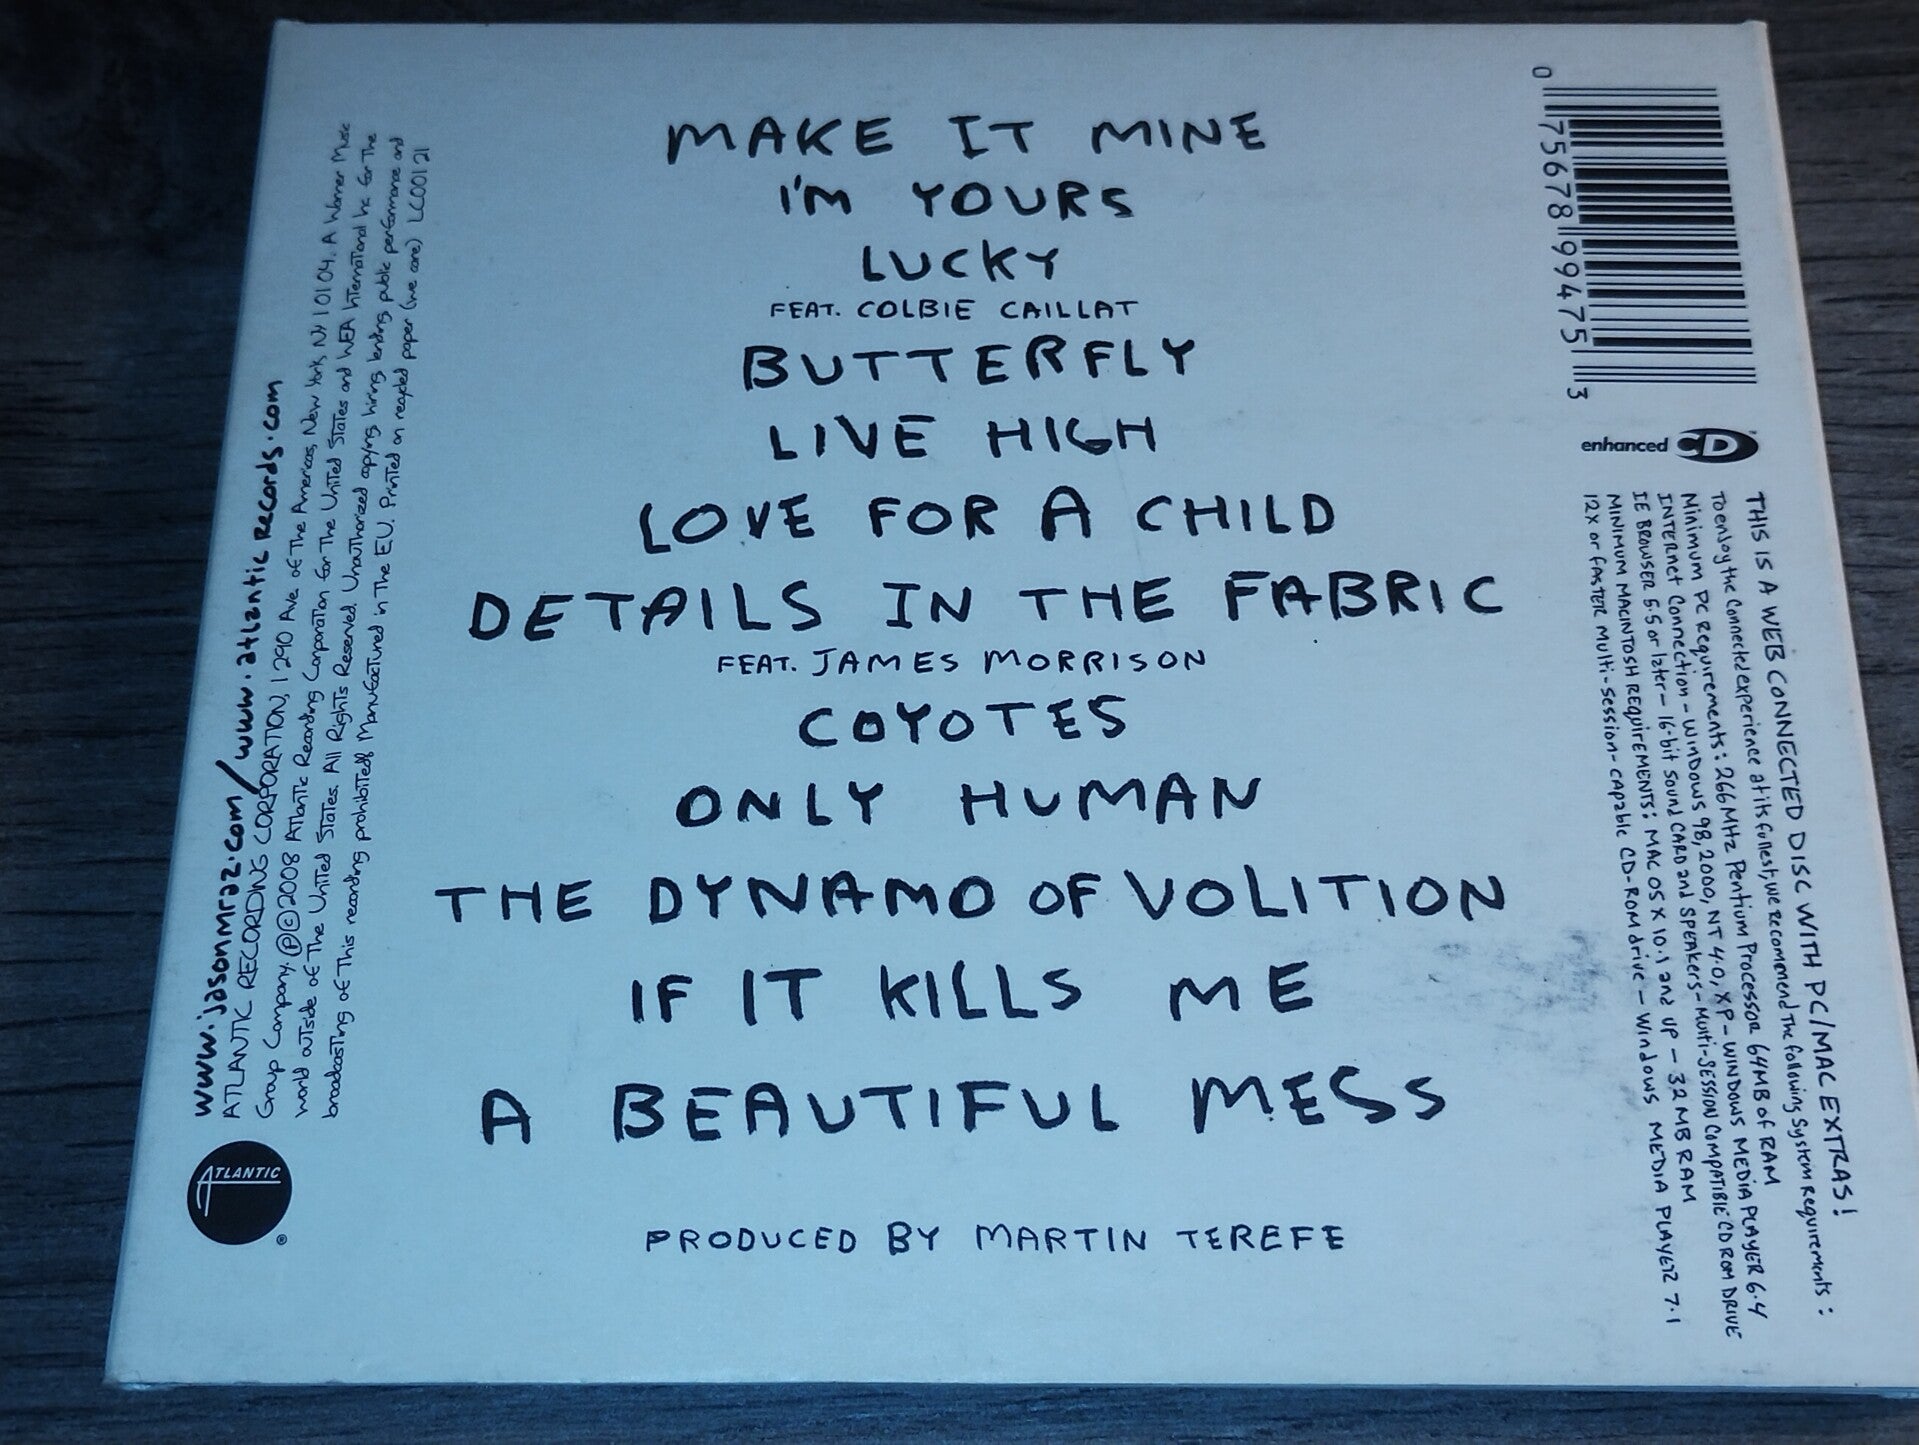 MAKE IT MINE
I'M YOURS
LUCKY
FEAT. COLBIE CAILLAT
BUTTERFLY
LIVE HIGH
LOVE FOR A CHILD
DETAILS IN THE FABRIC
FEAT. JAMES MORRISON
COYOTES
ONLY HUMAN
THE DYNAMO OF VOLITION
IF IT KILLS ME
A BEAUTIFUL MESS
PRODUCED BY MARTIN TEREFE
www.jasonmraz.com/www.atlantic records.com
ATLANTIC RECORDING CORPORATION, 1290 Ave of The Americas, New York, NY 10104. A Warner Music
Group Company. ℗©2008 Atlantic Recording Corporation for The United States and WEA International Inc for The
world outside of The United States. All Rights Reserved. Unauthorized copying, hiring, lending, public performance and
broadcasting of This recording prohibited! Manufactured in The EU. Printed on recycled paper (we care) LC00121
ATLANTIC ®
0 75678 99475 3
enhanced CD
THIS IS A WEB CONNECTED DISC WITH PC/MAC EXTRAS!
To enjoy the connected experience at its fullest, we recommend the following System Requirements:
Minimum PC Requirements: 266 MHz Pentium Processor 64MB of RAM
INTERNET Connection - WINDOWS 98, 2000, NT 4.0, XP - WINDOWS MEDIA PLAYER 6.4
IE BROWSER 5.5 or later - 16-bit SOUND CARD and SPEAKERS - Multi-SESSION COMPATIBLE CD ROM DRIVE
MINIMUM MACINTOSH REQUIREMENTS: MAC OS X 10.1 and UP - 32 MB RAM
12X or FASTER MULTI-SESSION-CAPABLE CD-ROM drive - WINDOWS MEDIA PLAYER 7.1